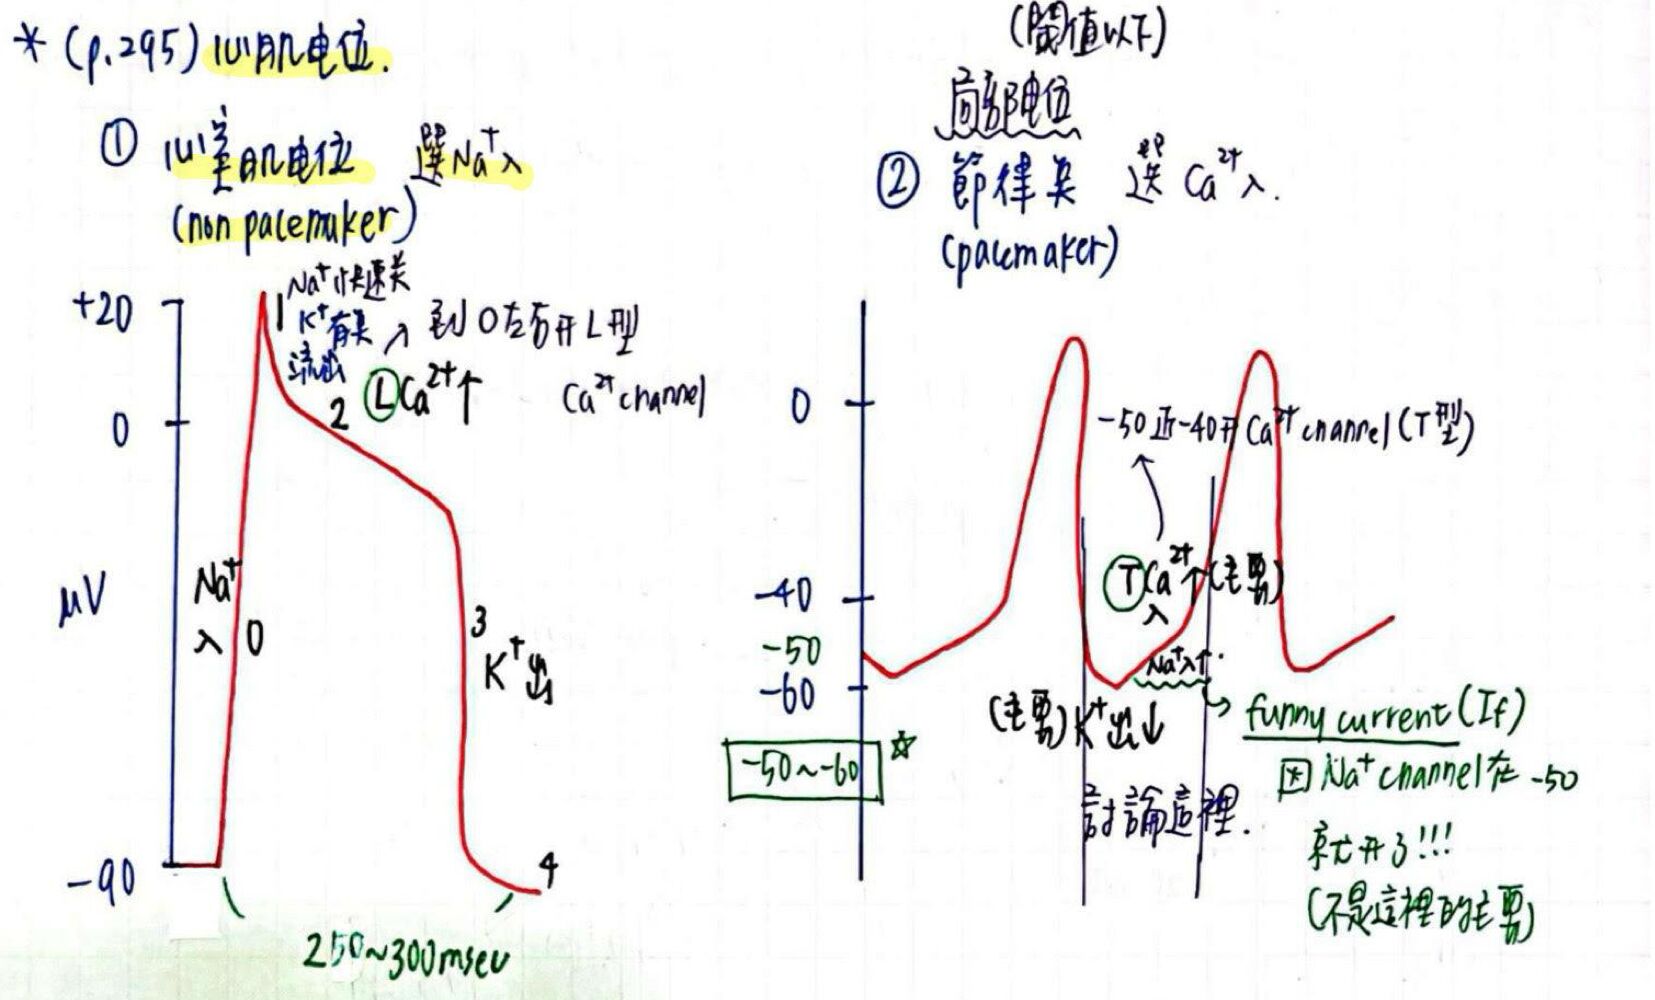 * (p.295) 心肌电位.
① 心室肌电位 選Na⁺入
(non pacemaker)
+20
0
μV
-90
Na⁺
入
0
1
Na⁺快速关
K⁺有些
流出
到0左右开L型
Ca²⁺channel
2
Ⓛ Ca²⁺↑
3
K⁺出
4
250~300msec
(閾值以下)
局部电位
② 節律點 選 Ca²⁺入.
(pacemaker)
0
-40
-50
-60
-50~-60 ☆
-50近-40开Ca²⁺channel(T型)
Ⓣ Ca²⁺↑(主要)
入
Na⁺入↑.
(主要)K⁺出↓
討論這裡.
funny current(If)
因Na⁺channel在 -50
就开了!!!
(不是這裡的主要)